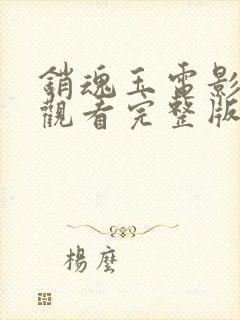 銷魂玉電影
觀看完整版
楊塵